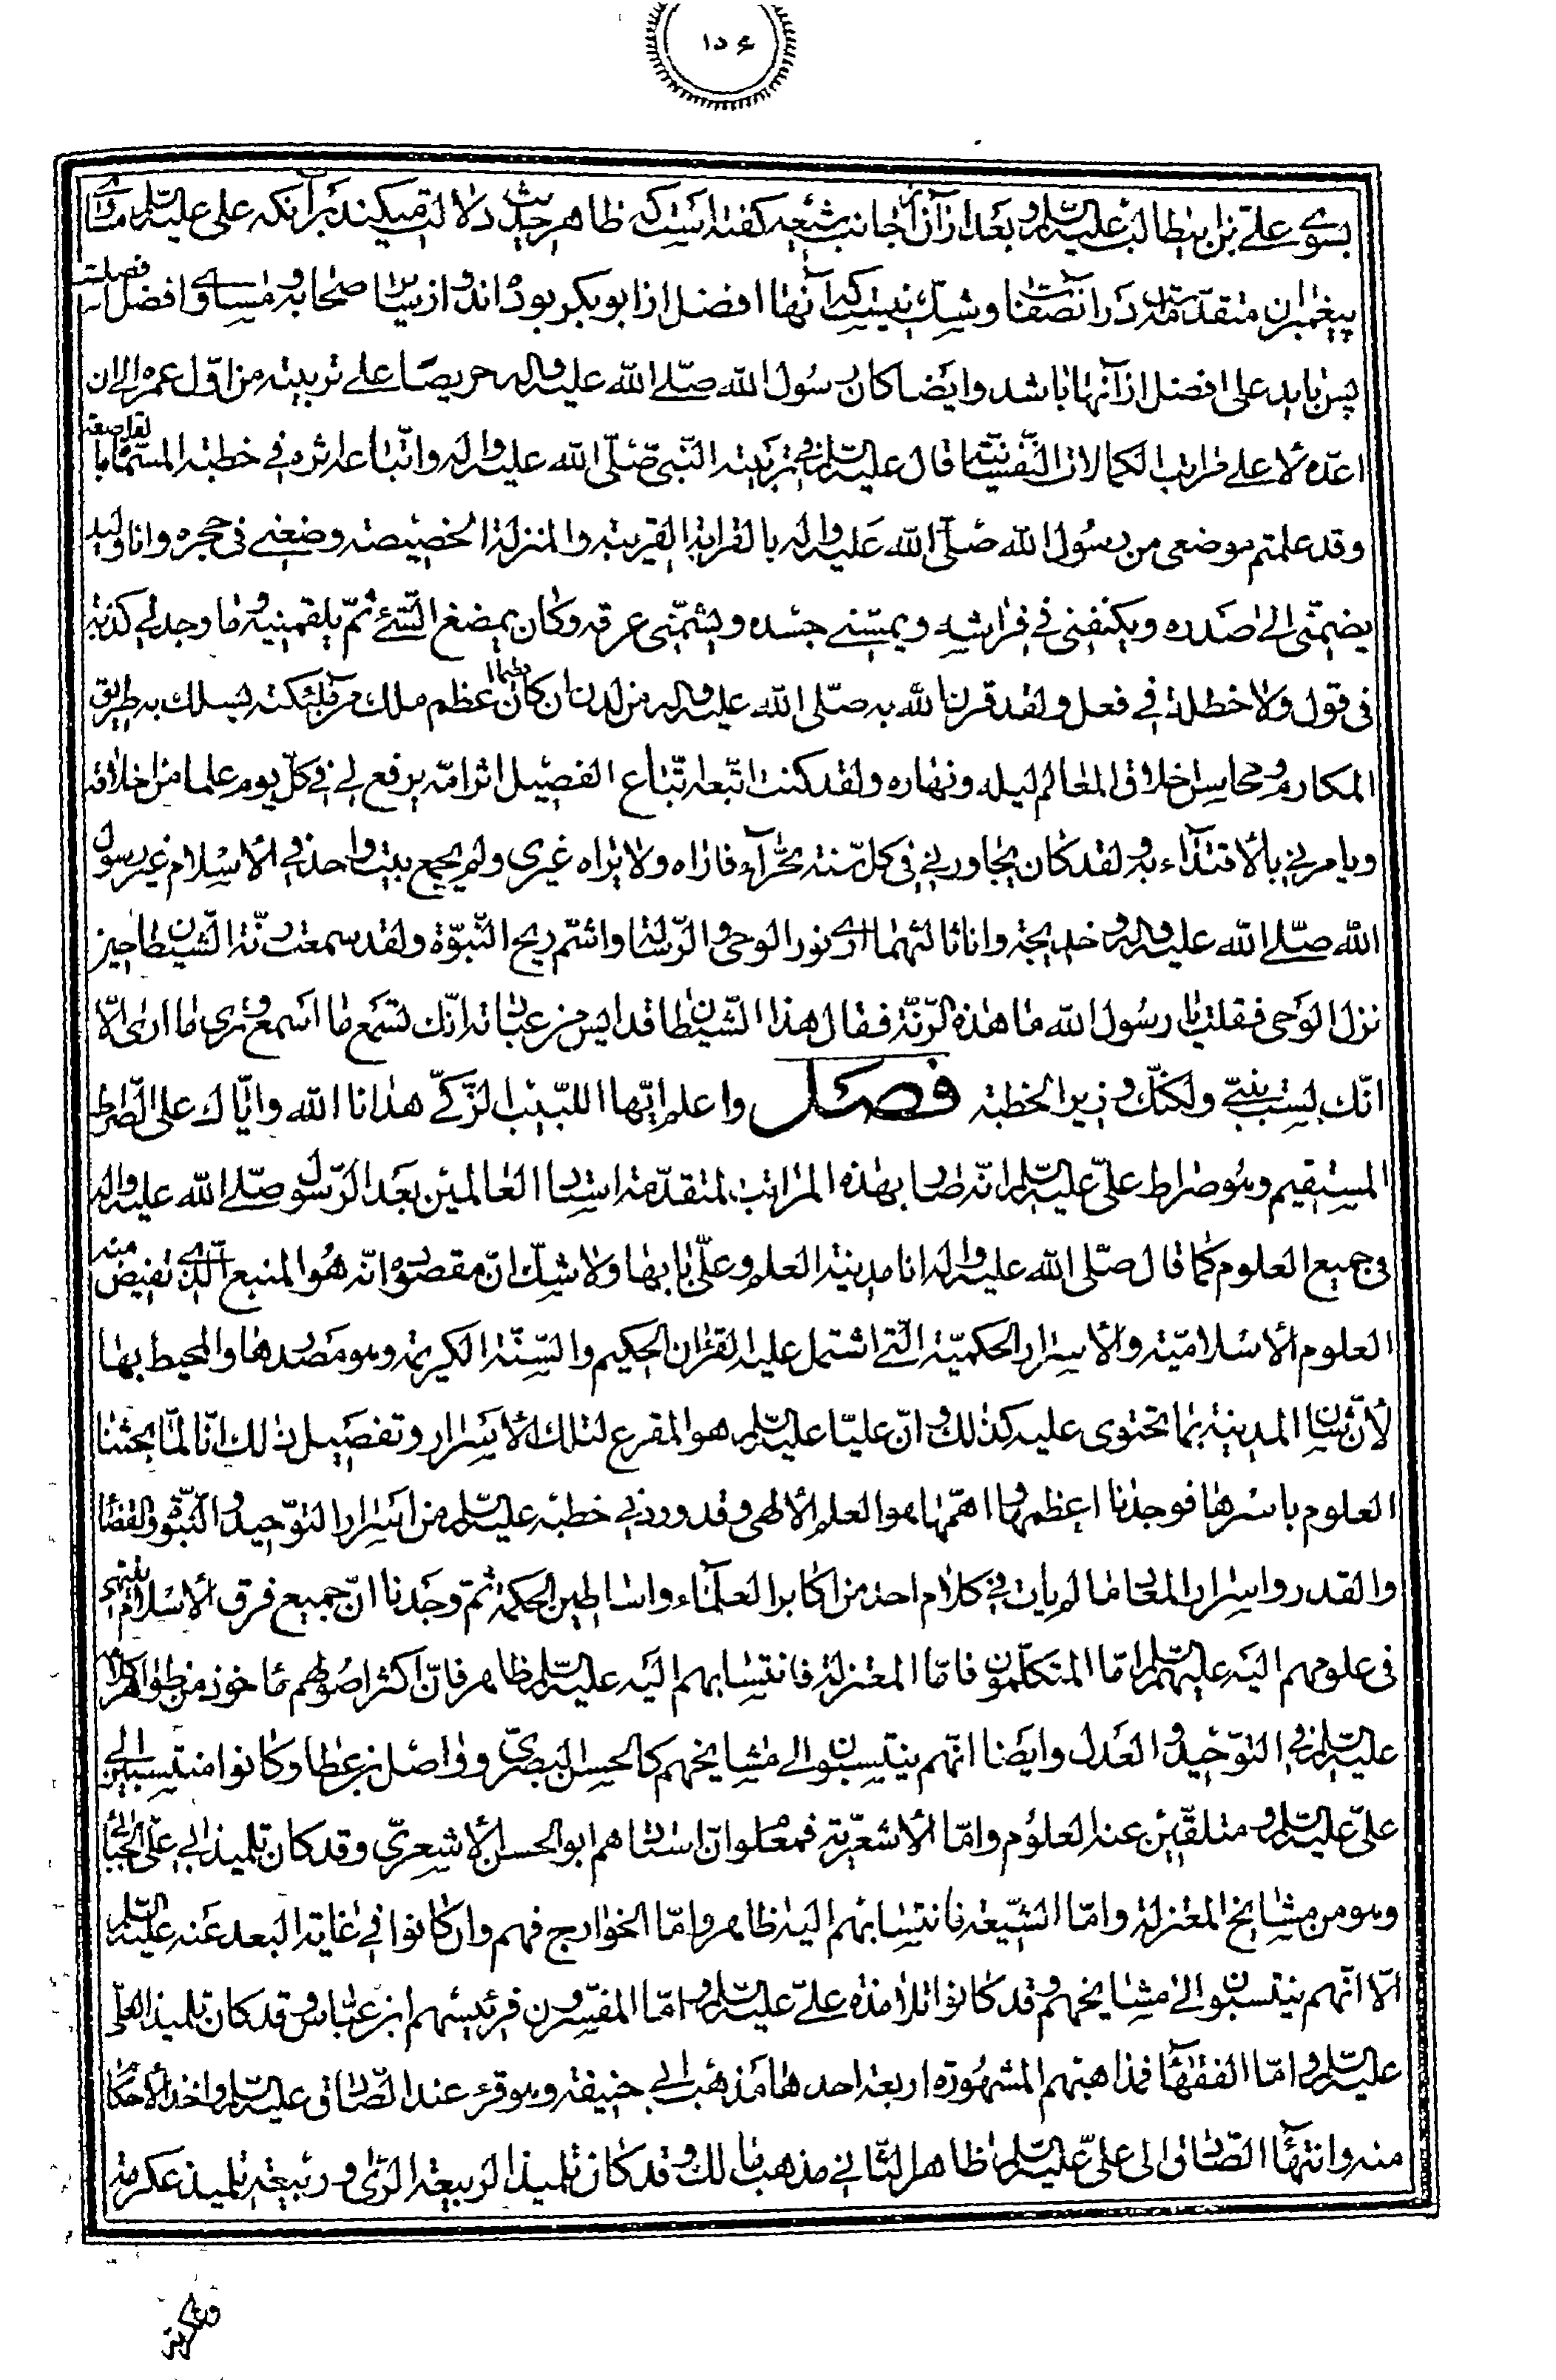 ۱۵۶
بسوی علی بن ابیطالب علیه السلام و بعد از آن از جانب شیعه گفته است که ظاهر حدیث دلالت میکند بر آنکه علی علیه السلام مساوی
پیغمبران متقدّمه در آن صفات و شک نیست که آنها افضل از ابوبکر بوده اند و از سایر صحابه و مساوی افضل افضلست
پس باید علی افضل از آنها باشد و ایضا کان رسول الله صلّی الله علیه و اله حریصا علی تربیته من اوّل عمره الی ان
اعدّه لاعلی مراتب الکمالات النّفسیّة قال علیه السّلم فی تربیته النّبی صلّی الله علیه و اله و اتّباعه اثره فی خطبته المسمّاة بالقاصعة
و قد علمتم موضعی من رسول الله صلّی الله علیه و اله بالقرابة القریبة و المنزلة الخصیصة وضعنی فی حجره و انا ولید
یضمّنی الی صدره و یکنفنی فی فراشه و یمسّنی جسده و یشمّنی عرقه و کان یمضغ الشّئ ثمّ یلقمنیه و ما وجد لی کذبة
فی قول و لا خطلة فی فعل و لقد قرن الله به صلّی الله علیه و اله من لدن ان کان فطیما اعظم ملک من ملئکته یسلک به طریق
المکارم و محاسن اخلاق العالم لیله و نهاره و لقد کنت اتّبعه اتّباع الفصیل اثر امّه یرفع لی فی کلّ یوم علما من اخلاقه
و یامرنی بالاقتداء به و لقد کان یجاورنی فی کل سنة بحرآء فاراه و لا یراه غیری و لم یجمع بیت واحد فی الاسلام غیر رسول
الله صلّی الله علیه و اله و خدیجة و انا ثالثهما اری نور الوحی و الرّسالة و اشتم ریح النّبوّة و لقد سمعت رنّة الشّیطان حین
نزل الوحی فقلت یا رسول الله ما هذه الرّنّة فقال هذا الشّیطان قد ایس من عبادته انّک تسمع ما اسمع و تری ما اری الّا
انّک لست بنبیّ و لکنّک وزیر الخطبة فصل و اعلم ایّها اللّبیب الزّکیّ هدانا الله و ایّاک علی الصّراط
المستقیم و هو صراط علیّ علیه السّلم انّه صار بهذه المراتب المتقدّمة استاد العالمین بعد الرّسول صلّی الله علیه و اله
فی جمیع العلوم کما قال صلّی الله علیه و اله انا مدینة العلم و علیّ بابها و لا شکّ انّ مقصوده انّه هو المنبع الّذی تفیض منه
العلوم الاسلامیّة و الاسرار الحکمیّة الّتی اشتمل علیه القرءان الحکیم و السّنّة الکریمة و هو مصدرها و المحیط بها
لانّ شان المدینة بما تحتوی علیه کذلک و انّ علیّا علیه السّلم هو المفرع لتلک الاسرار و تفصیل ذلک انّا لمّا بحثنا
العلوم باسرها فوجدنا اعظمها و اهمّها هو العلم الالهی و قد ورد فی خطبه علیه السّلم من اسرار التوّحید و النّبوّة و القضآء
و القدر و اسرار المعاد ما لم یات فی کلام احد من اکابر العلمآء و اساطین الحکمة ثمّ وجدنا انّ جمیع فرق الاسلام ینتهی
فی علومهم الیه علیه السّلم امّا المتکلّمون فامّا المعتزلة فانتسابهم الیه علیه السّلم ظاهر فانّ اکثر اصولهم ماخوذ من ظواهر کلامه
علیه السّلم فی التوّحید و العدل و ایضا انّهم ینتسبون الی مشایخهم کالحسن البصریّ و واصل بن عطا و کانوا منتسبین الی
علیّ علیه السّلم و متلقّین عنه العلوم و امّا الاشعریّة فمعلوم انّ استادهم ابو الحسن الاشعریّ و قد کان تلمیذ ابی علیّ الجبّائی
و هو من مشایخ المعتزلة و امّا الشّیعة فانتسابهم الیه ظاهر و امّا الخوارج فهم و ان کانوا فی غایة البعد عنه علیه السّلم
الّا انّهم ینتسبون الی مشایخهم و قد کانوا تلامذة علیّ علیه السّلم و امّا المفسّرون فرئیسهم ابن عبّاس و قد کان تلمیذ العلی
علیه السّلم و امّا الفقهآء فمذاهبهم المشهورة اربعة احدها مذهب ابی حنیفة و هو قرء عند الصّادق علیه السّلم و اخذ الاحکام
منه و انتهآء الصّادق الی علیّ علیه السّلم ظاهر الثّانی مذهب مالک و قد کان تلمیذ الربیعة الرّای و ربیعة تلمیذ عکرمة